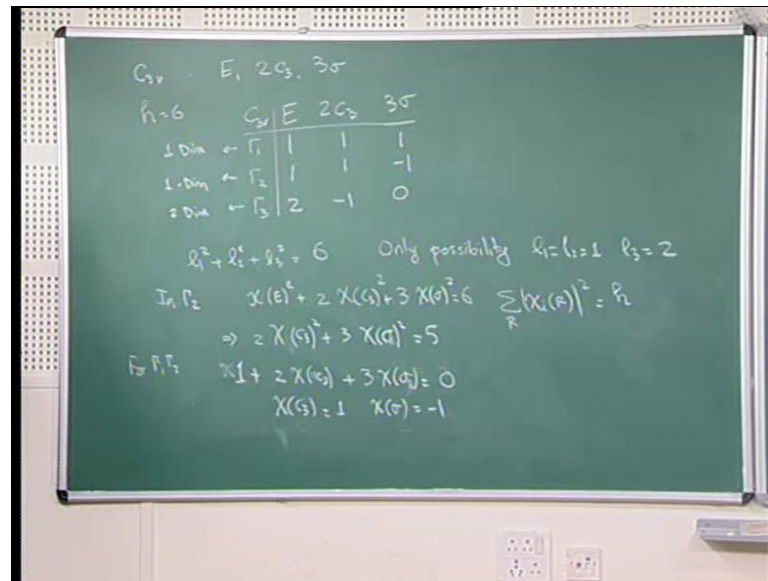 C3v . E, 2C3, 3σ
h=6 C3v E 2C3 3σ
1 Dim ← Γ1 1 1 1
1-Dim ← Γ2 1 1 -1
2 Dim ← Γ3 2 -1 0
l1² + l2² + l3² = 6 Only possibility l1=l2=1 l3=2
In Γ2 χ(E)² + 2 χ(C3)² + 3 χ(σ)² = 6 Σ_R |χi(R)|² = h
⇒ 2 χ(C3)² + 3 χ(σ)² = 5
For Γ1 Γ2 1 + 2 χ(C3) + 3 χ(σ) = 0
χ(C3) = 1 χ(σ) = -1